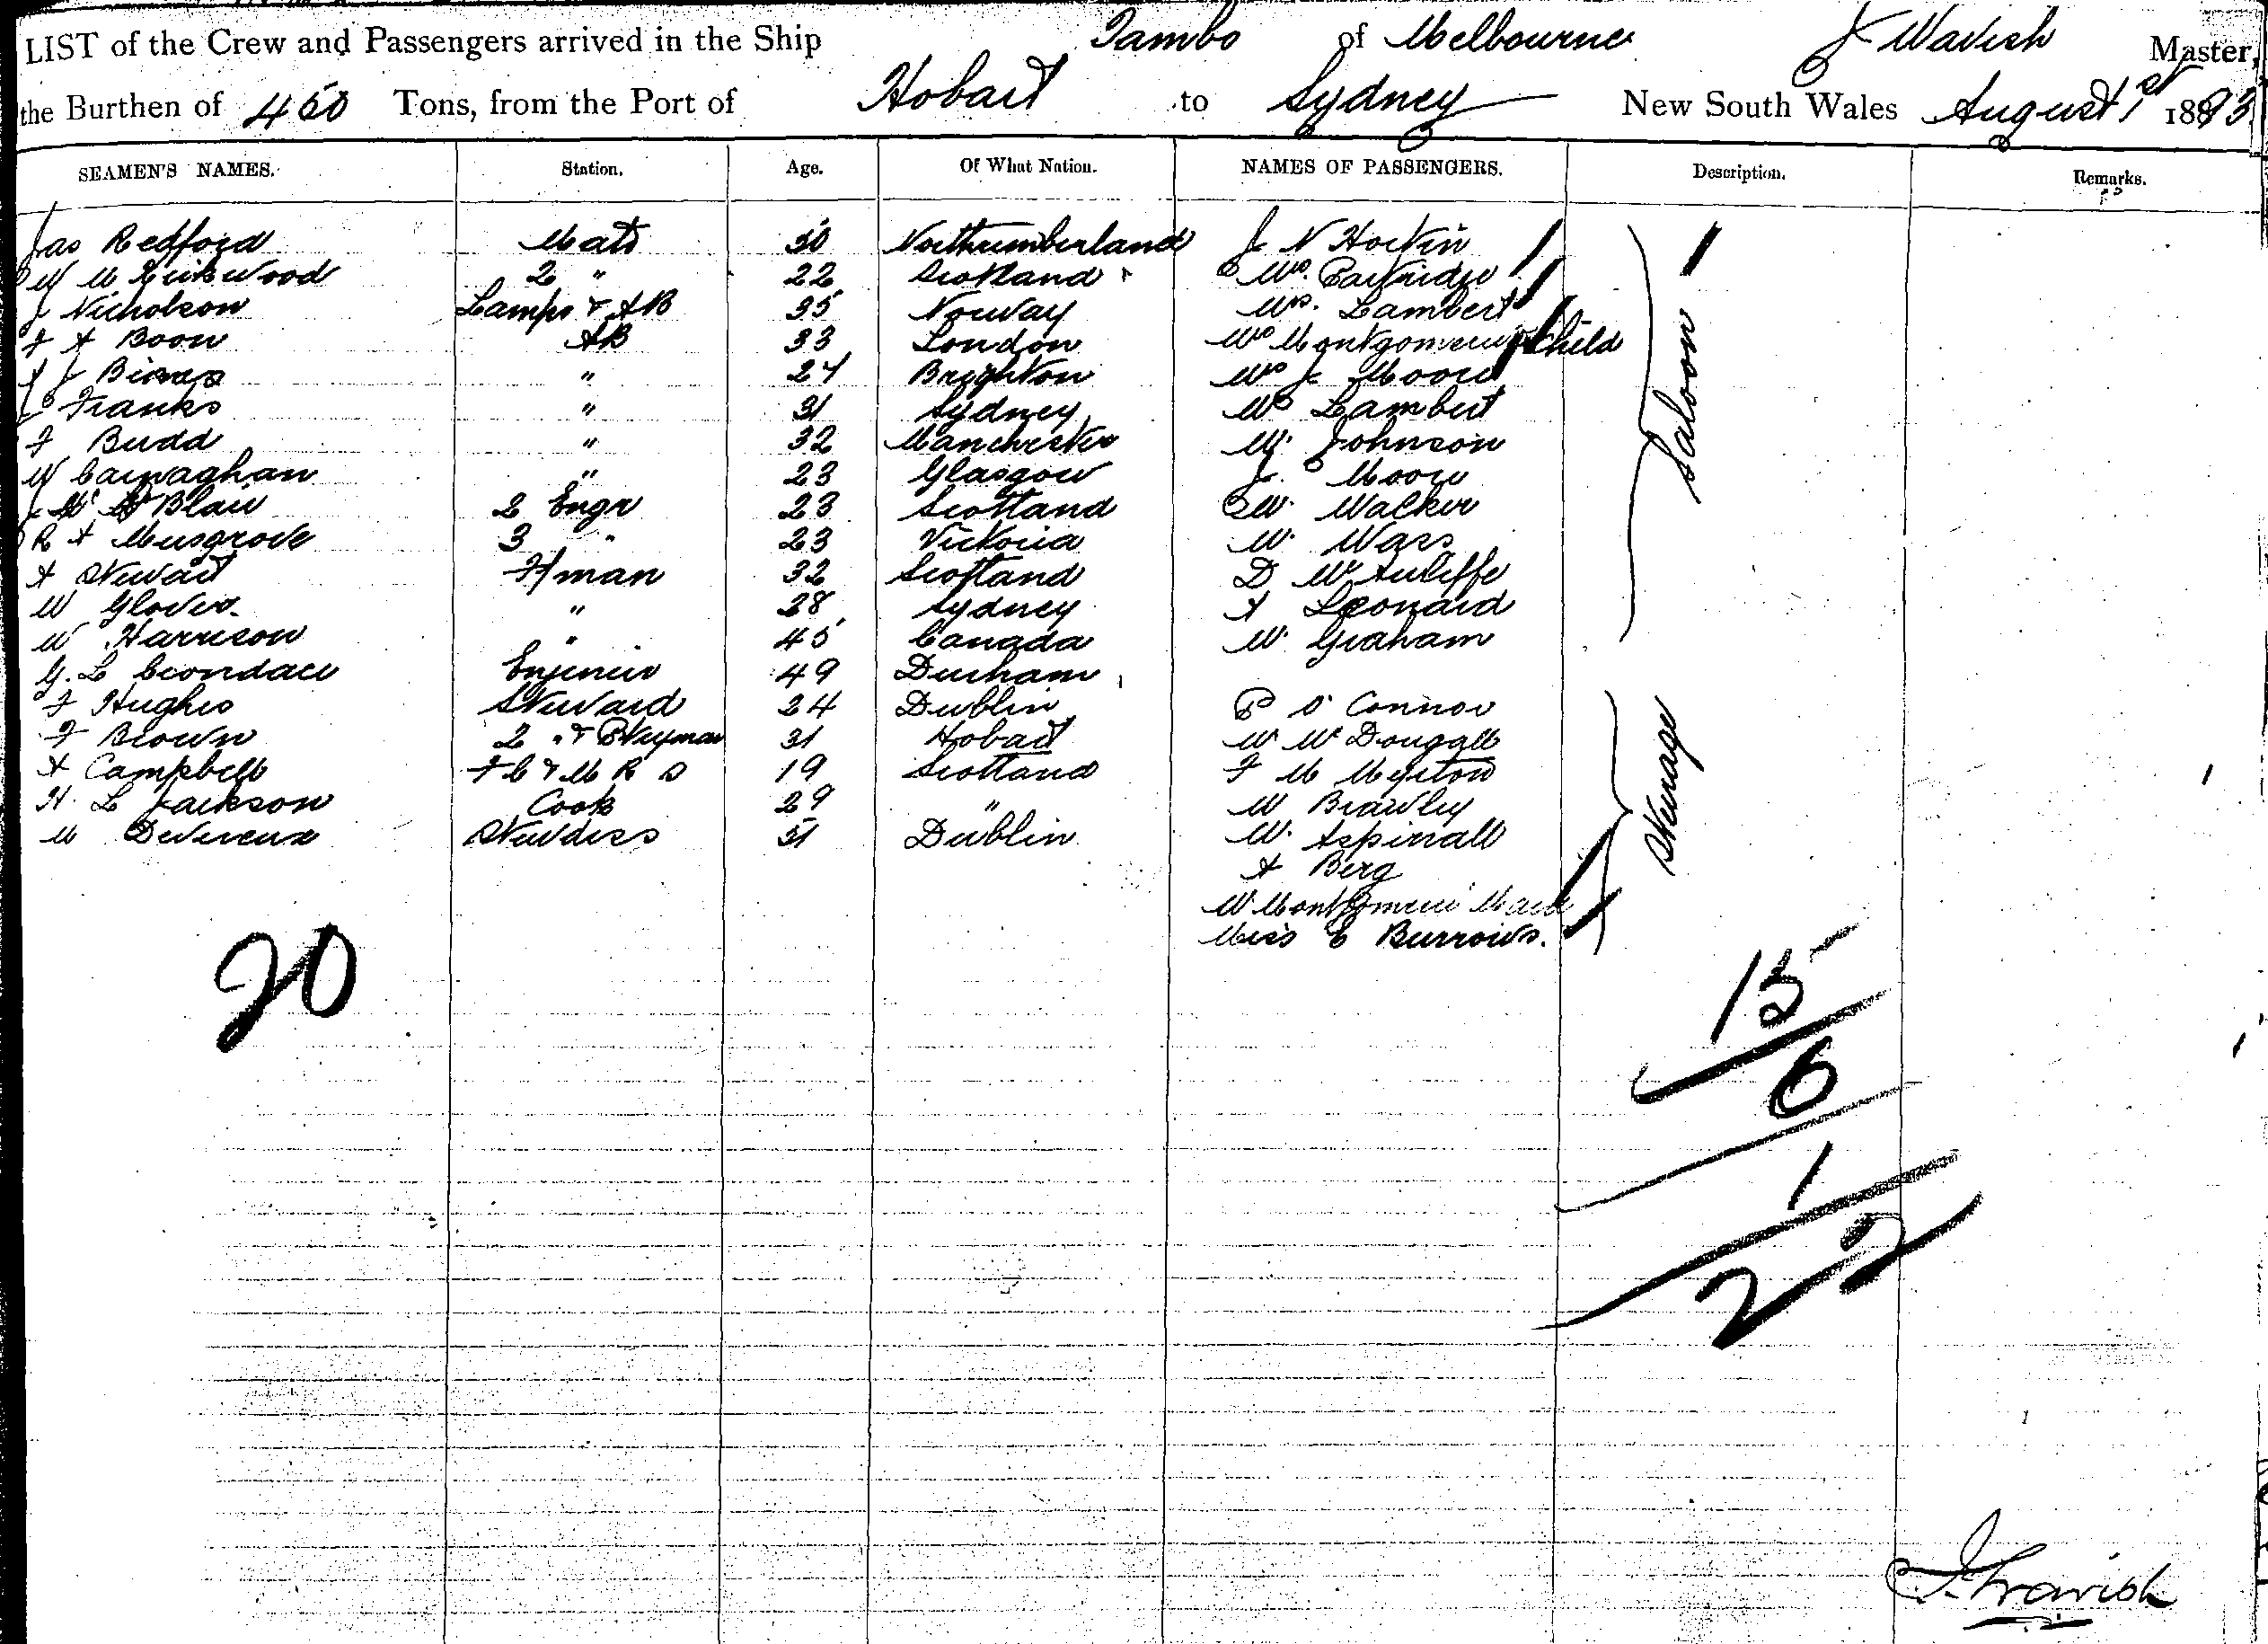 LIST of the Crew and Passengers arrived in the Ship Tambo of Melbourne J Wavish Master,
the Burthen of 450 Tons, from the Port of Hobart to Sydney New South Wales August 1st 1893
SEAMEN'S NAMES. Station. Age. Of What Nation. NAMES OF PASSENGERS. Description. Remarks.
Jas Redford Mate 50 Northumberland J N Hockin
W M Kirkwood 2 " 22 Scotland Mrs. Partridge
J Nicholson Lamps & AB 35 Norway Mrs. Lambert
F A Boon AB 33 London Mrs Montgomerie & Child
J " 24 Brighton Mrs J Moore
Franks " 31 Sydney Mr Lambert
F Budd " 32 Manchester Mr. Johnson
W Carnaghan " 23 Glasgow J. Moore
Blair 2 Engr 23 Scotland W. Walker
R A Musgrove 3 " 23 Victoria W. Wass
A Stewart F/man 32 Scotland D McAuliffe
W Glover " 28 Sydney A Leonard
W Harrison " 45 Canada W. Graham
Saloon
G. L Crondace Engineer 49 Durham
F Hughes Steward 24 Dublin P O'Connor
F Brown 2 " & P/tryman 31 Hobart W McDougall
A Campbell F C & M R S 19 Scotland F M
H. L Jackson Cook 29 " W Brawley
M Devereux Stewdess 51 Dublin W. Aspinall
A Berg
Montgomerie Maid
Miss C Burrows.
Steerage
20
15
6
1
22
J. Wavish